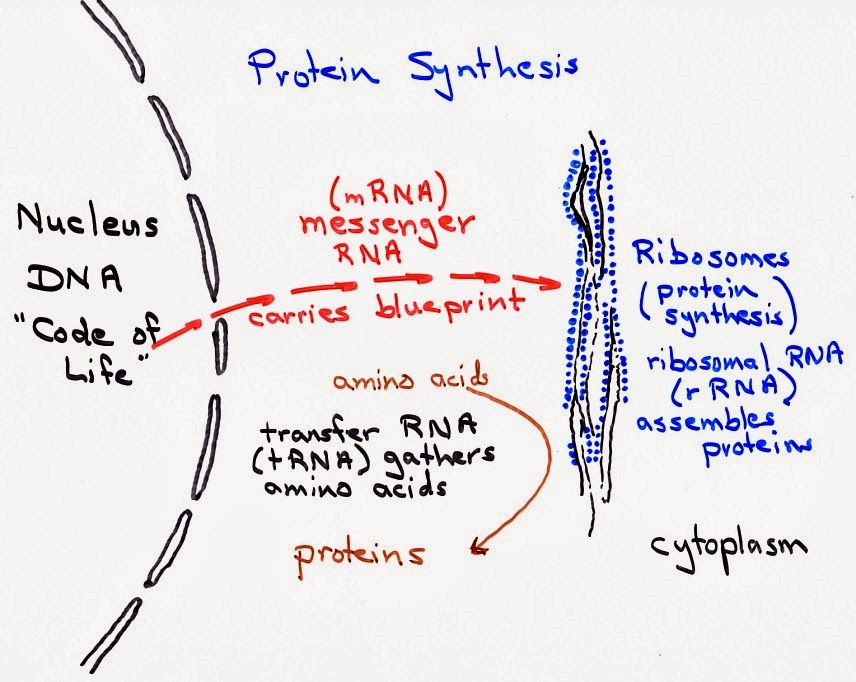 Protein Synthesis
Nucleus
DNA
"Code of
Life"
(mRNA)
messenger
RNA
carries blueprint
amino acids
transfer RNA
(tRNA) gathers
amino acids
proteins
Ribosomes
(protein
synthesis)
ribosomal RNA
(rRNA)
assembles
proteins
cytoplasm